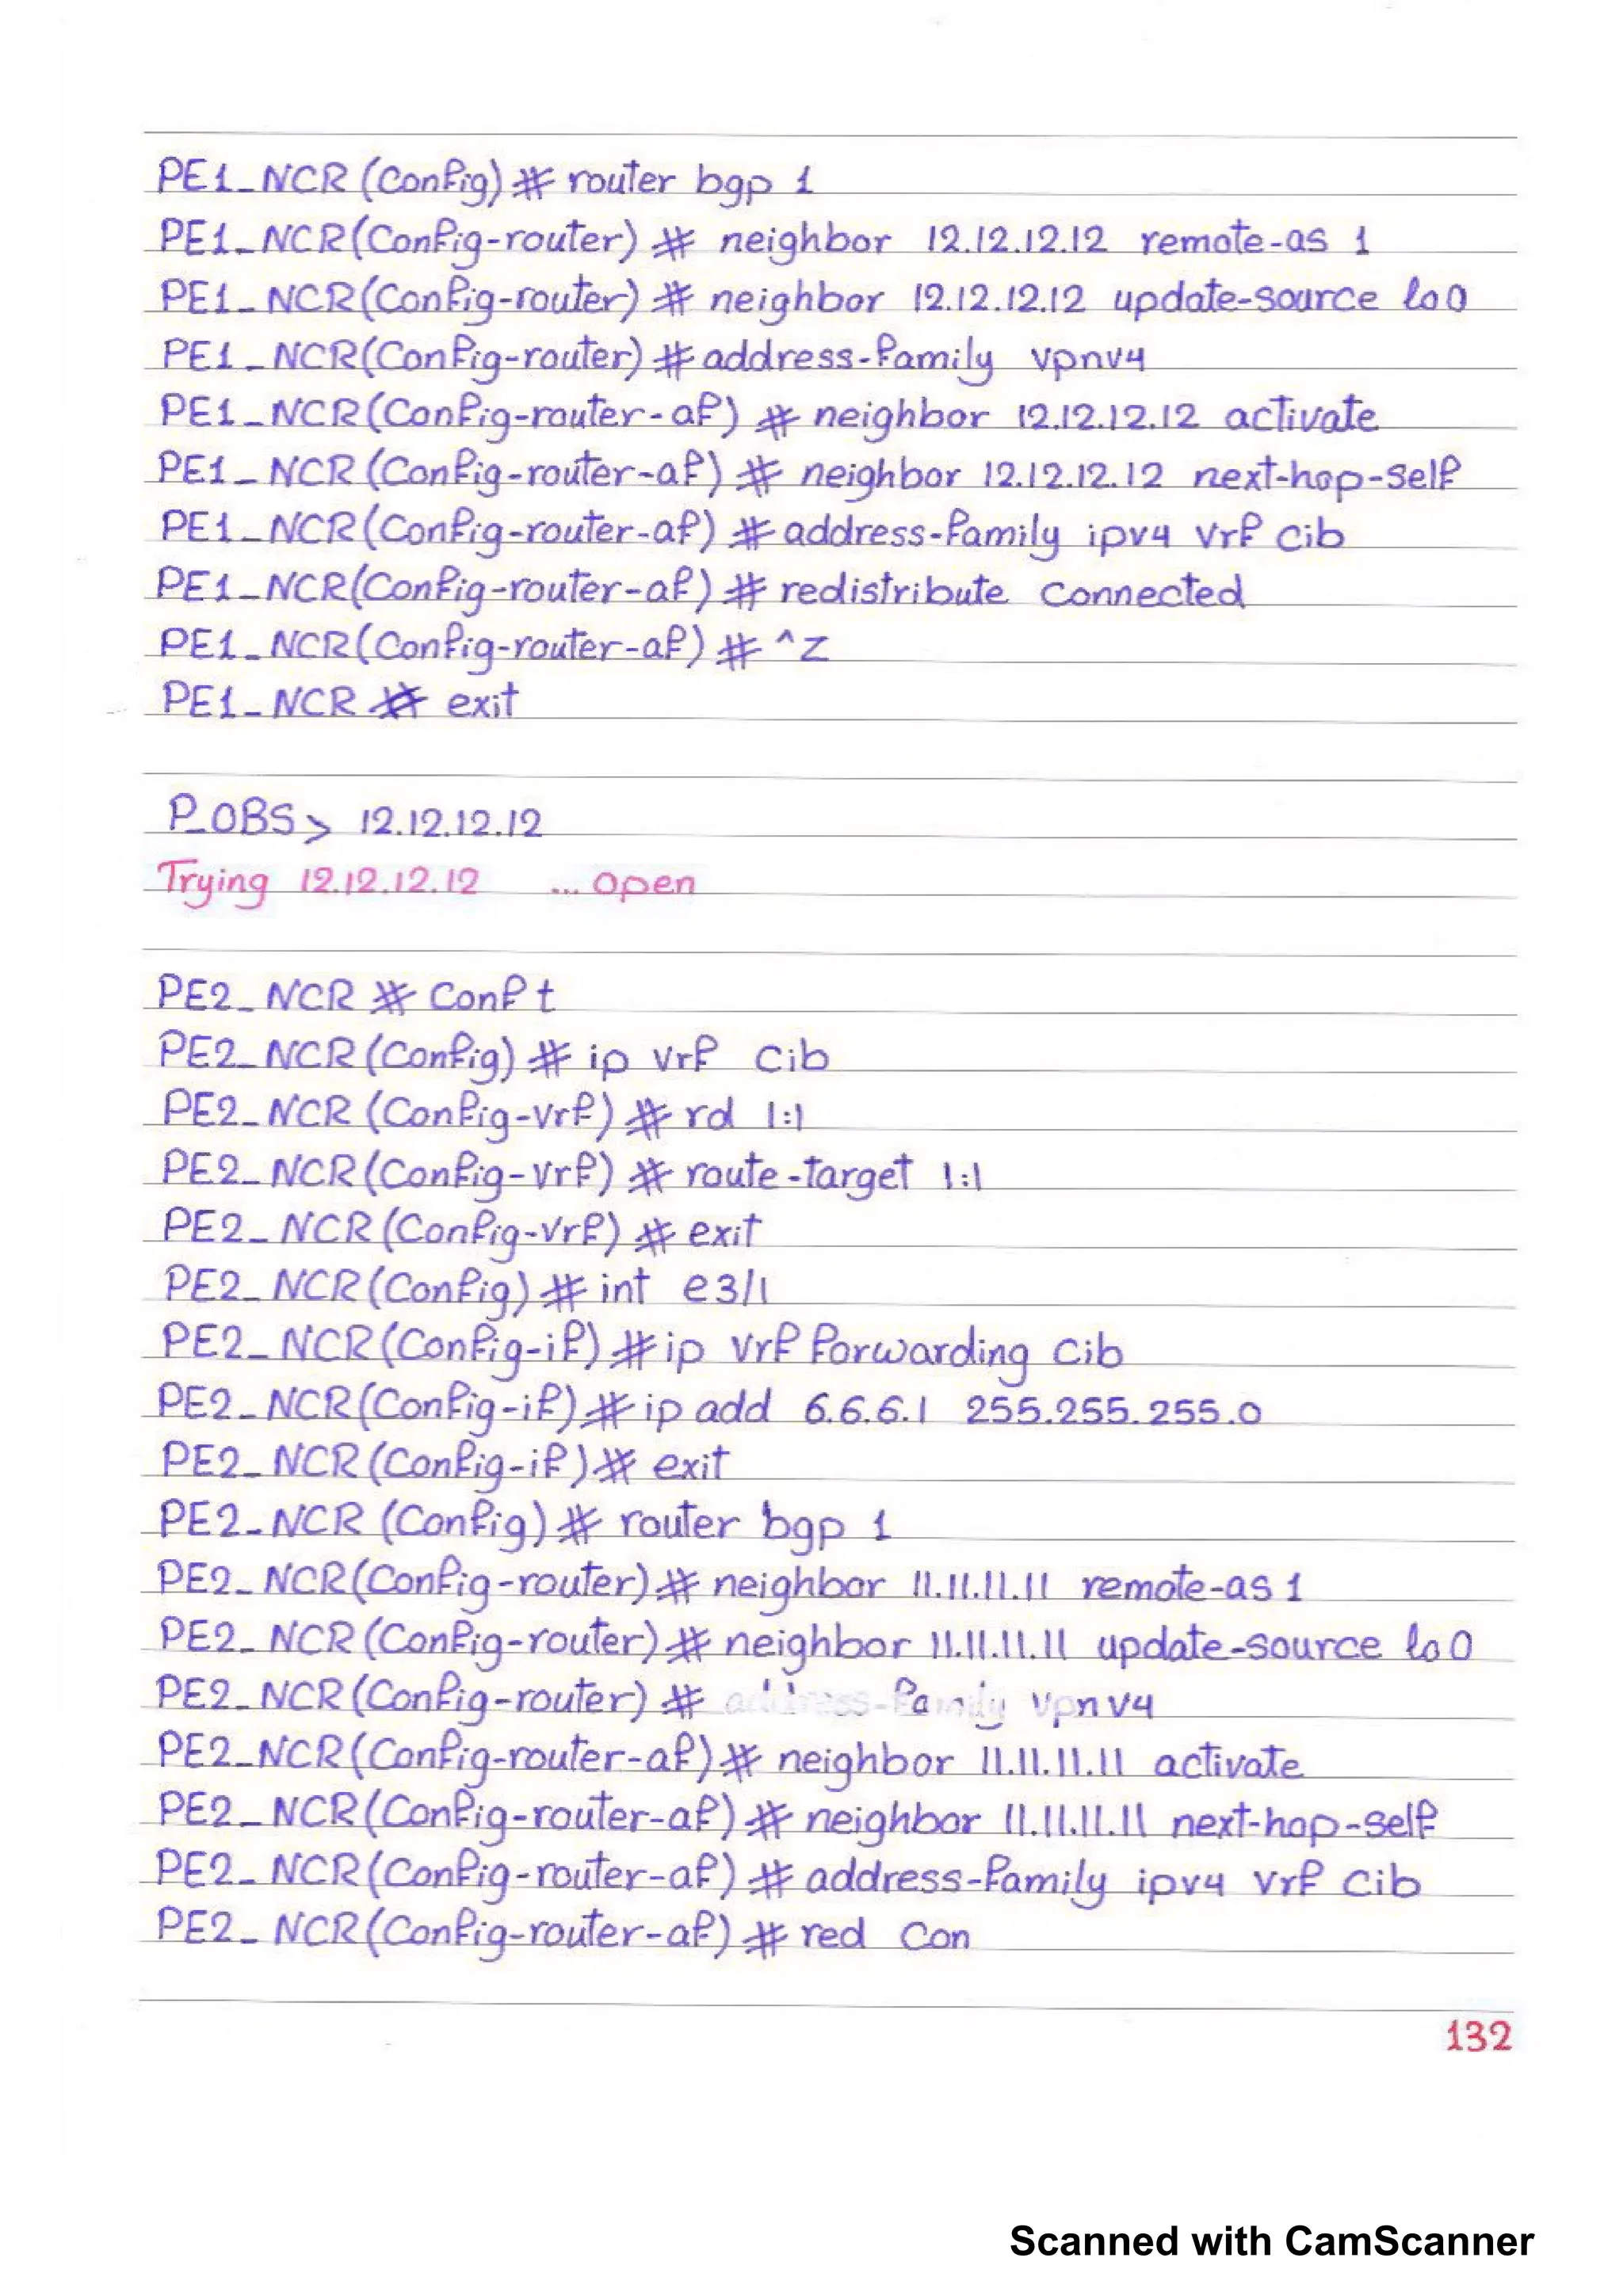 PE1_NCR (Config) # router bgp 1
PE1_NCR(Config-router) # neighbor 12.12.12.12 remote-as 1
PE1_NCR(Config-router) # neighbor 12.12.12.12 update-source lo0
PE1_NCR(Config-router) # address-family vpnv4
PE1_NCR(Config-router-af) # neighbor 12.12.12.12 activate
PE1_NCR(Config-router-af) # neighbor 12.12.12.12 next-hop-self
PE1_NCR(Config-router-af) # address-family ipv4 vrf cib
PE1_NCR(Config-router-af) # redistribute connected
PE1_NCR(Config-router-af) # ^Z
PE1_NCR # exit
P_OBS> 12.12.12.12
Trying 12.12.12.12 ... open
PE2_NCR # Conf t
PE2_NCR(Config) # ip vrf Cib
PE2_NCR (Config-vrf) # rd 1:1
PE2_NCR(Config-vrf) # route-target 1:1
PE2_NCR(Config-vrf) # exit
PE2_NCR(Config) # int e3/1
PE2_NCR(Config-if) # ip vrf forwarding Cib
PE2_NCR(Config-if) # ip add 6.6.6.1 255.255.255.0
PE2_NCR(Config-if) # exit
PE2_NCR (Config) # router bgp 1
PE2_NCR(Config-router) # neighbor 11.11.11.11 remote-as 1
PE2_NCR(Config-router) # neighbor 11.11.11.11 update-source lo0
PE2_NCR(Config-router) # address-family vpnv4
PE2_NCR(Config-router-af) # neighbor 11.11.11.11 activate
PE2_NCR(Config-router-af) # neighbor 11.11.11.11 next-hop-self
PE2_NCR(Config-router-af) # address-family ipv4 vrf cib
PE2_NCR(Config-router-af) # red Con
132
Scanned with CamScanner